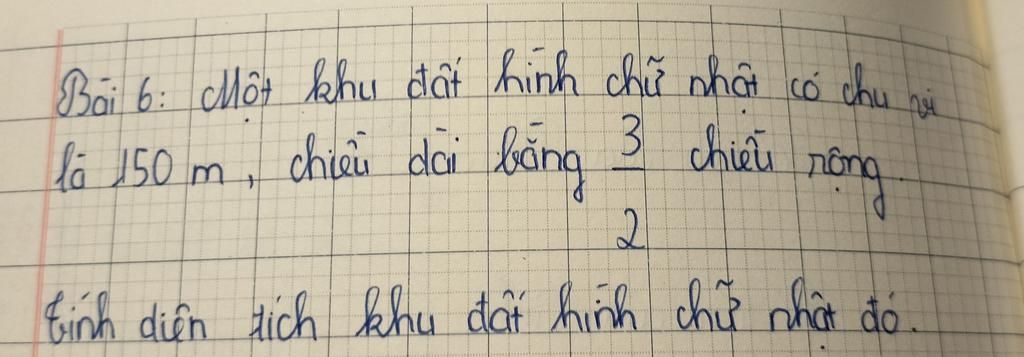 Bài 6: Một khu đất hình chữ nhật có chu vi
là 150 m, chiều dài bằng 3/2 chiều rộng.
tính diện tích khu đất hình chữ nhật đó.